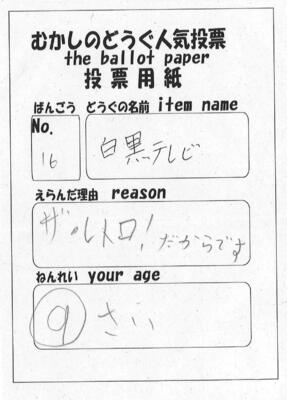 むかしのどうぐ人気投票
the ballot paper
投票用紙
ばんごう どうぐの名前 item name
No.
16 白黒テレビ
えらんだ理由 reason
ザ・レトロ!だからです
ねんれい your age
9さい